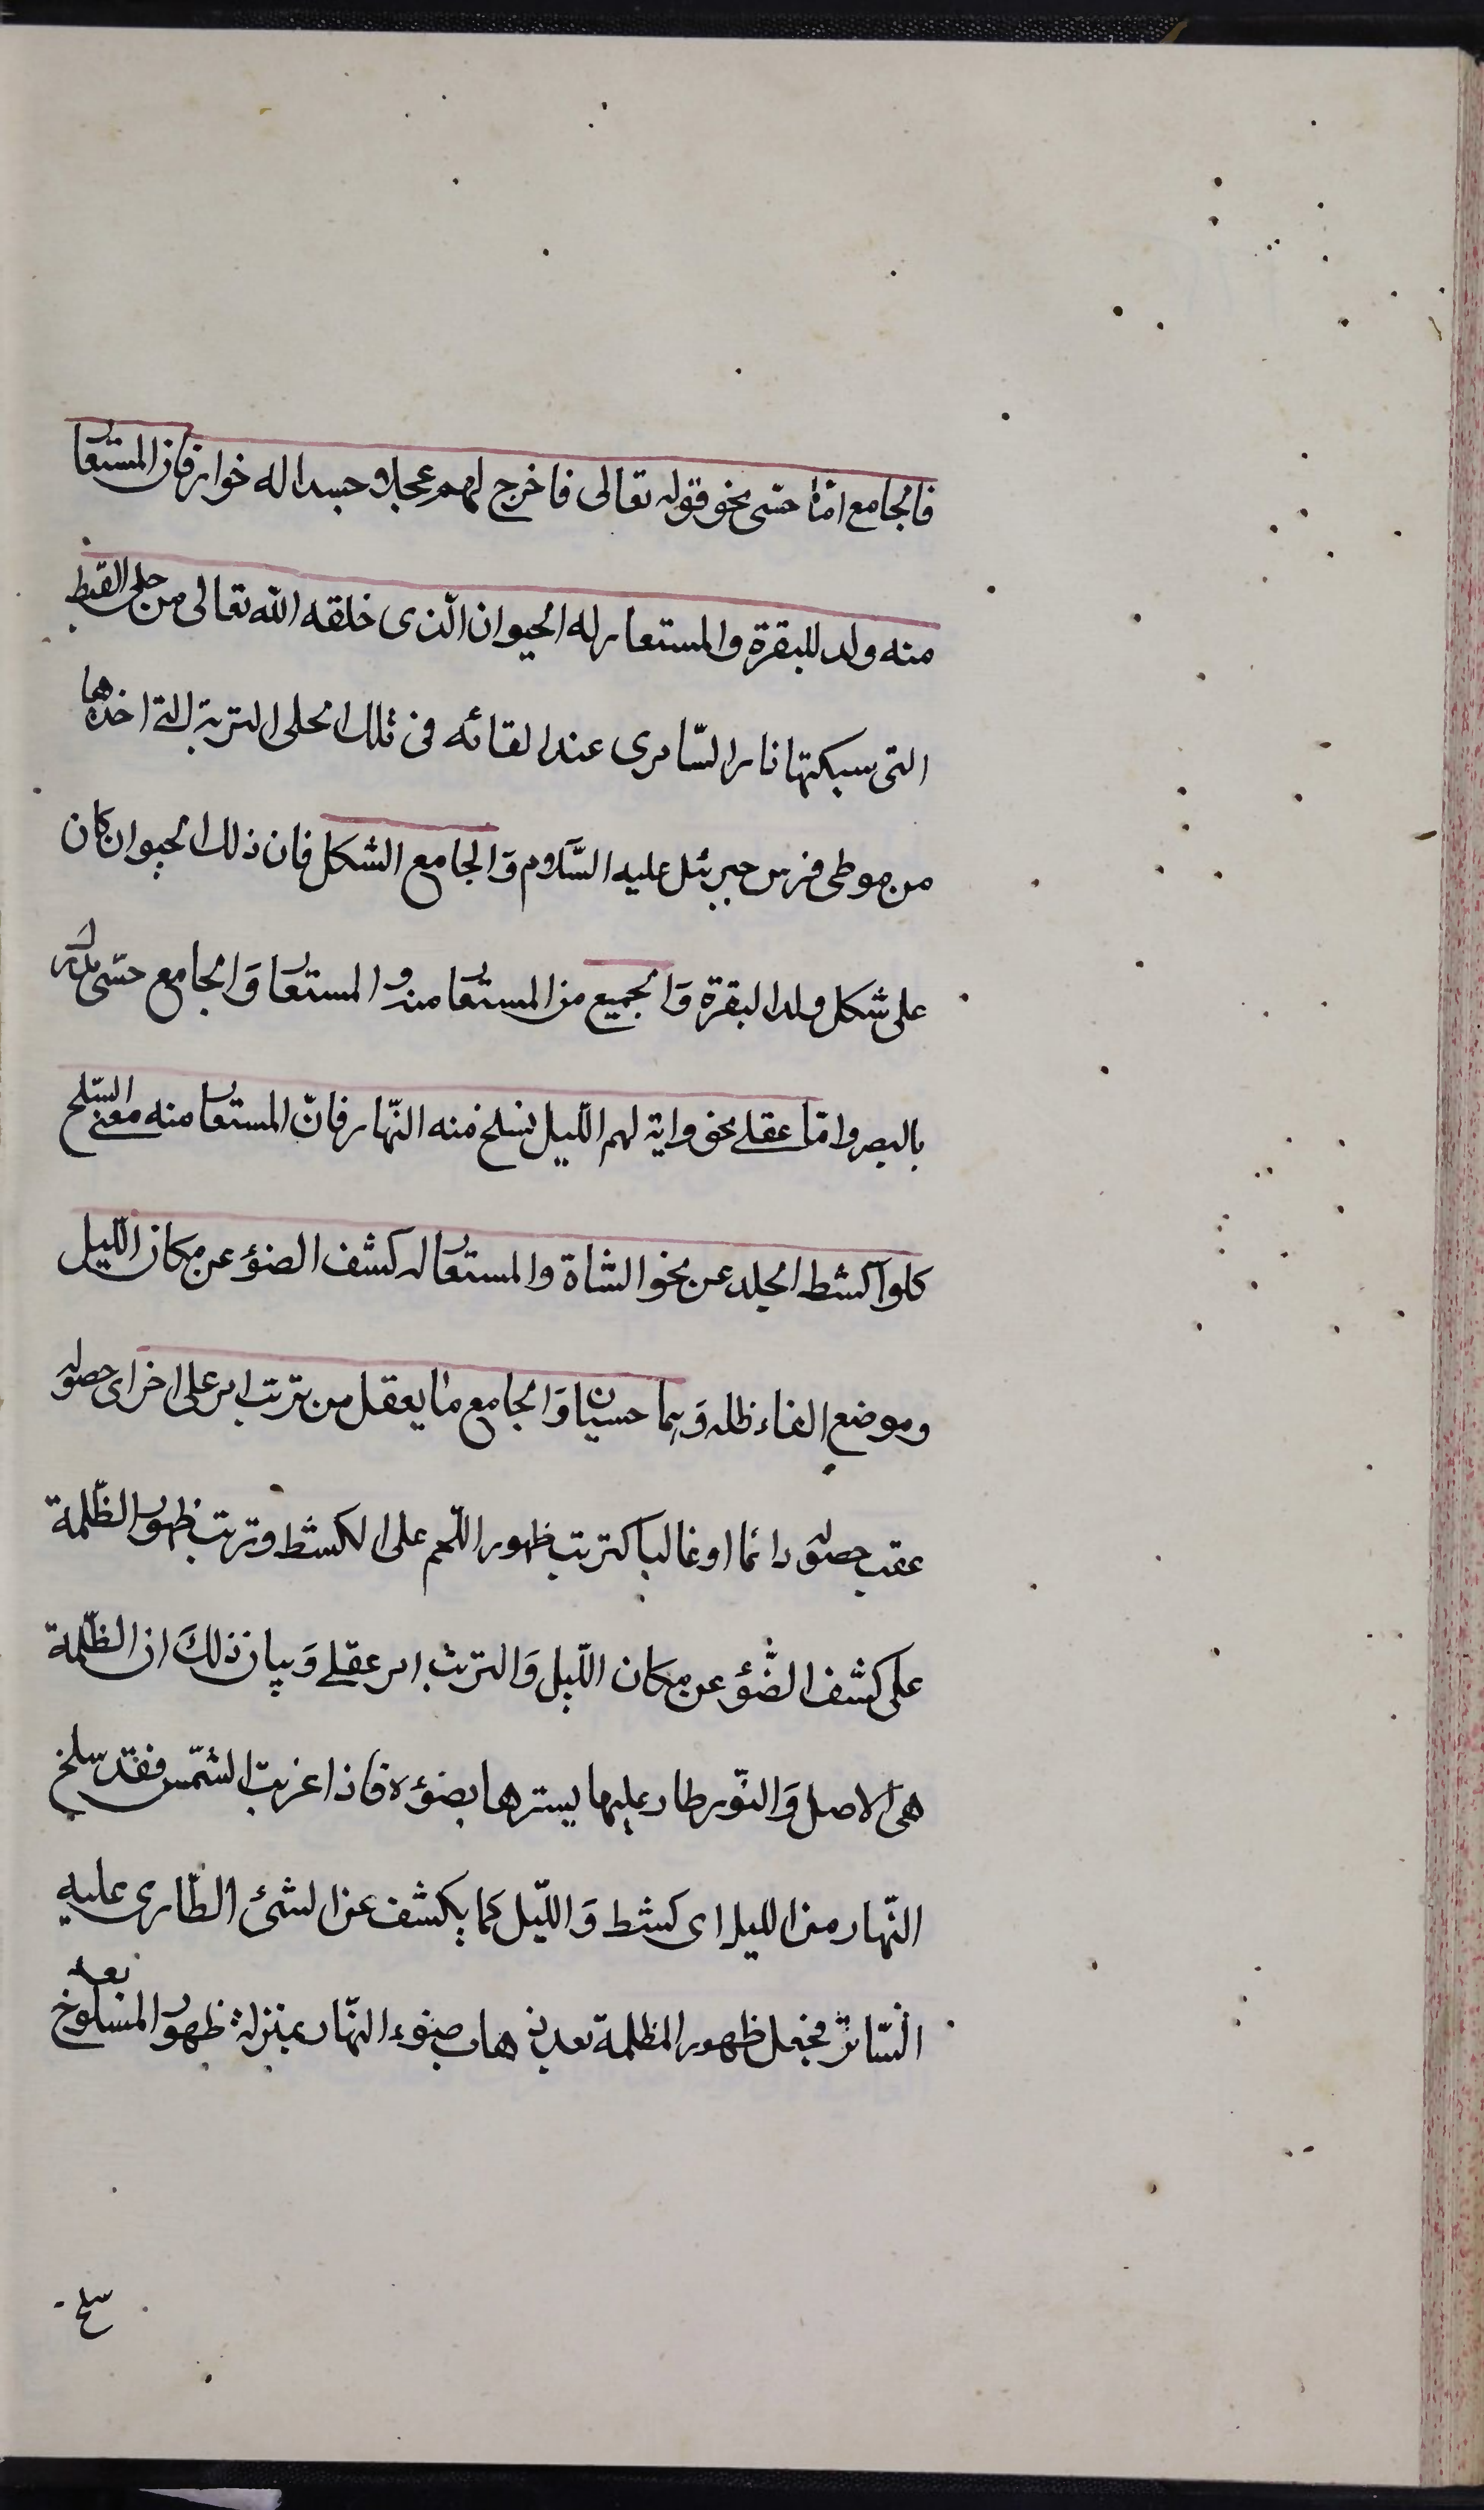 فالجامع امّا حسّى نحو قوله تعالى فاخرج لهم عجلا جسدا له خوار فان المستعار
منه ولد البقرة والمستعار له الحيوان الّذى خلقه الله تعالى من حلى القبط
التى سبكتها نار السّامرى عند القائه فى تلك الحلى التربة التى اخذها
من موطى فرس جبرئل عليه السّلام وَالجامع الشكل فان ذلك الحيوان كان
على شكل ولد البقرة وَالجميع من المستعار منه والمستعار له وَالجامع حسّى مدرك
بالبصر وامّا عقلى نحو واية لهم اللّيل نسلخ منه النّهار فانّ المستعار منه معنى السّلخ
كلوا كشط الجلد عن نحو الشاة والمستعار له كشف الضوٴ عن مكان اللّيل
وموضع القاء ظله وَهما حسيان وَالجامع ما يعقل من ترتب امر على اخر اى حصوله
عقب حصوله دائما او غالبا كترتب ظهور اللّحم على الكشط وترتب ظهور الظّلمة
على كشف الضّوٴ عن مكان اللّيل وَالترتب امر عقلى وَبيان ذلكَ ان الظّلمة
هى الاصل وَالنّور طار عليها يسترها بضوٴه فاذا غربت الشّمس فقد سلخ
النّهار من الليل اى كشط وَاللّيل كما يكشف عن الشئ الطّارى عليه
السّاتر فجعل ظهور المظلمة بعد ذهاب ضوء النّهار بمنزلة ظهور المسلوخ بعد
سلخ